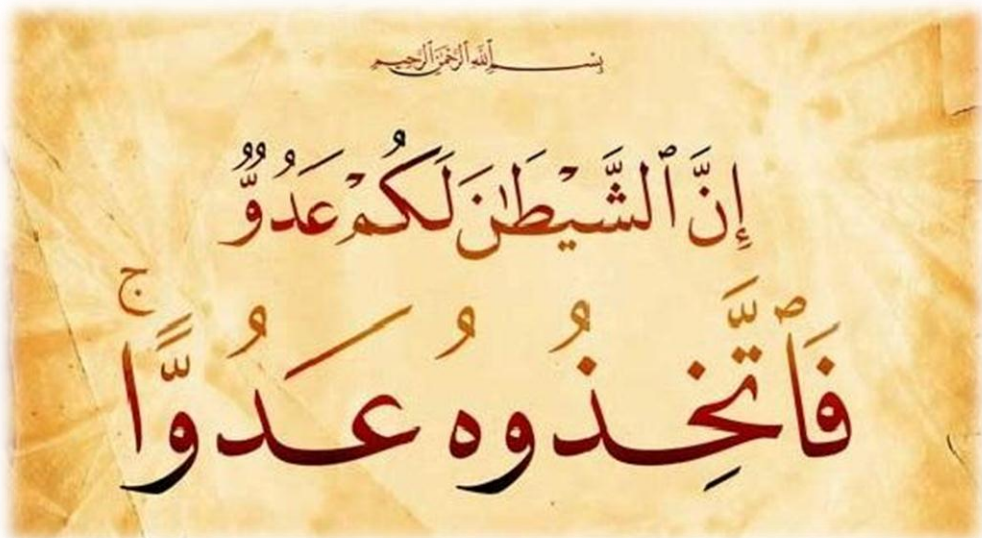 بِسْمِ ٱللَّهِ ٱلرَّحْمَٰنِ ٱلرَّحِيمِ
إِنَّ ٱلشَّيْطَٰنَ لَكُمْ عَدُوٌّ
فَٱتَّخِذُوهُ عَدُوًّا ۚ